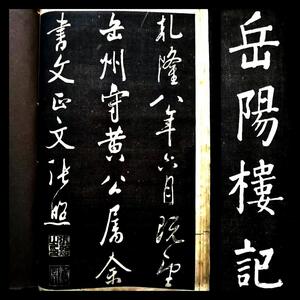 岳陽樓記
乹隆八年六月既望
岳州守黃公屬余
書文正文張照